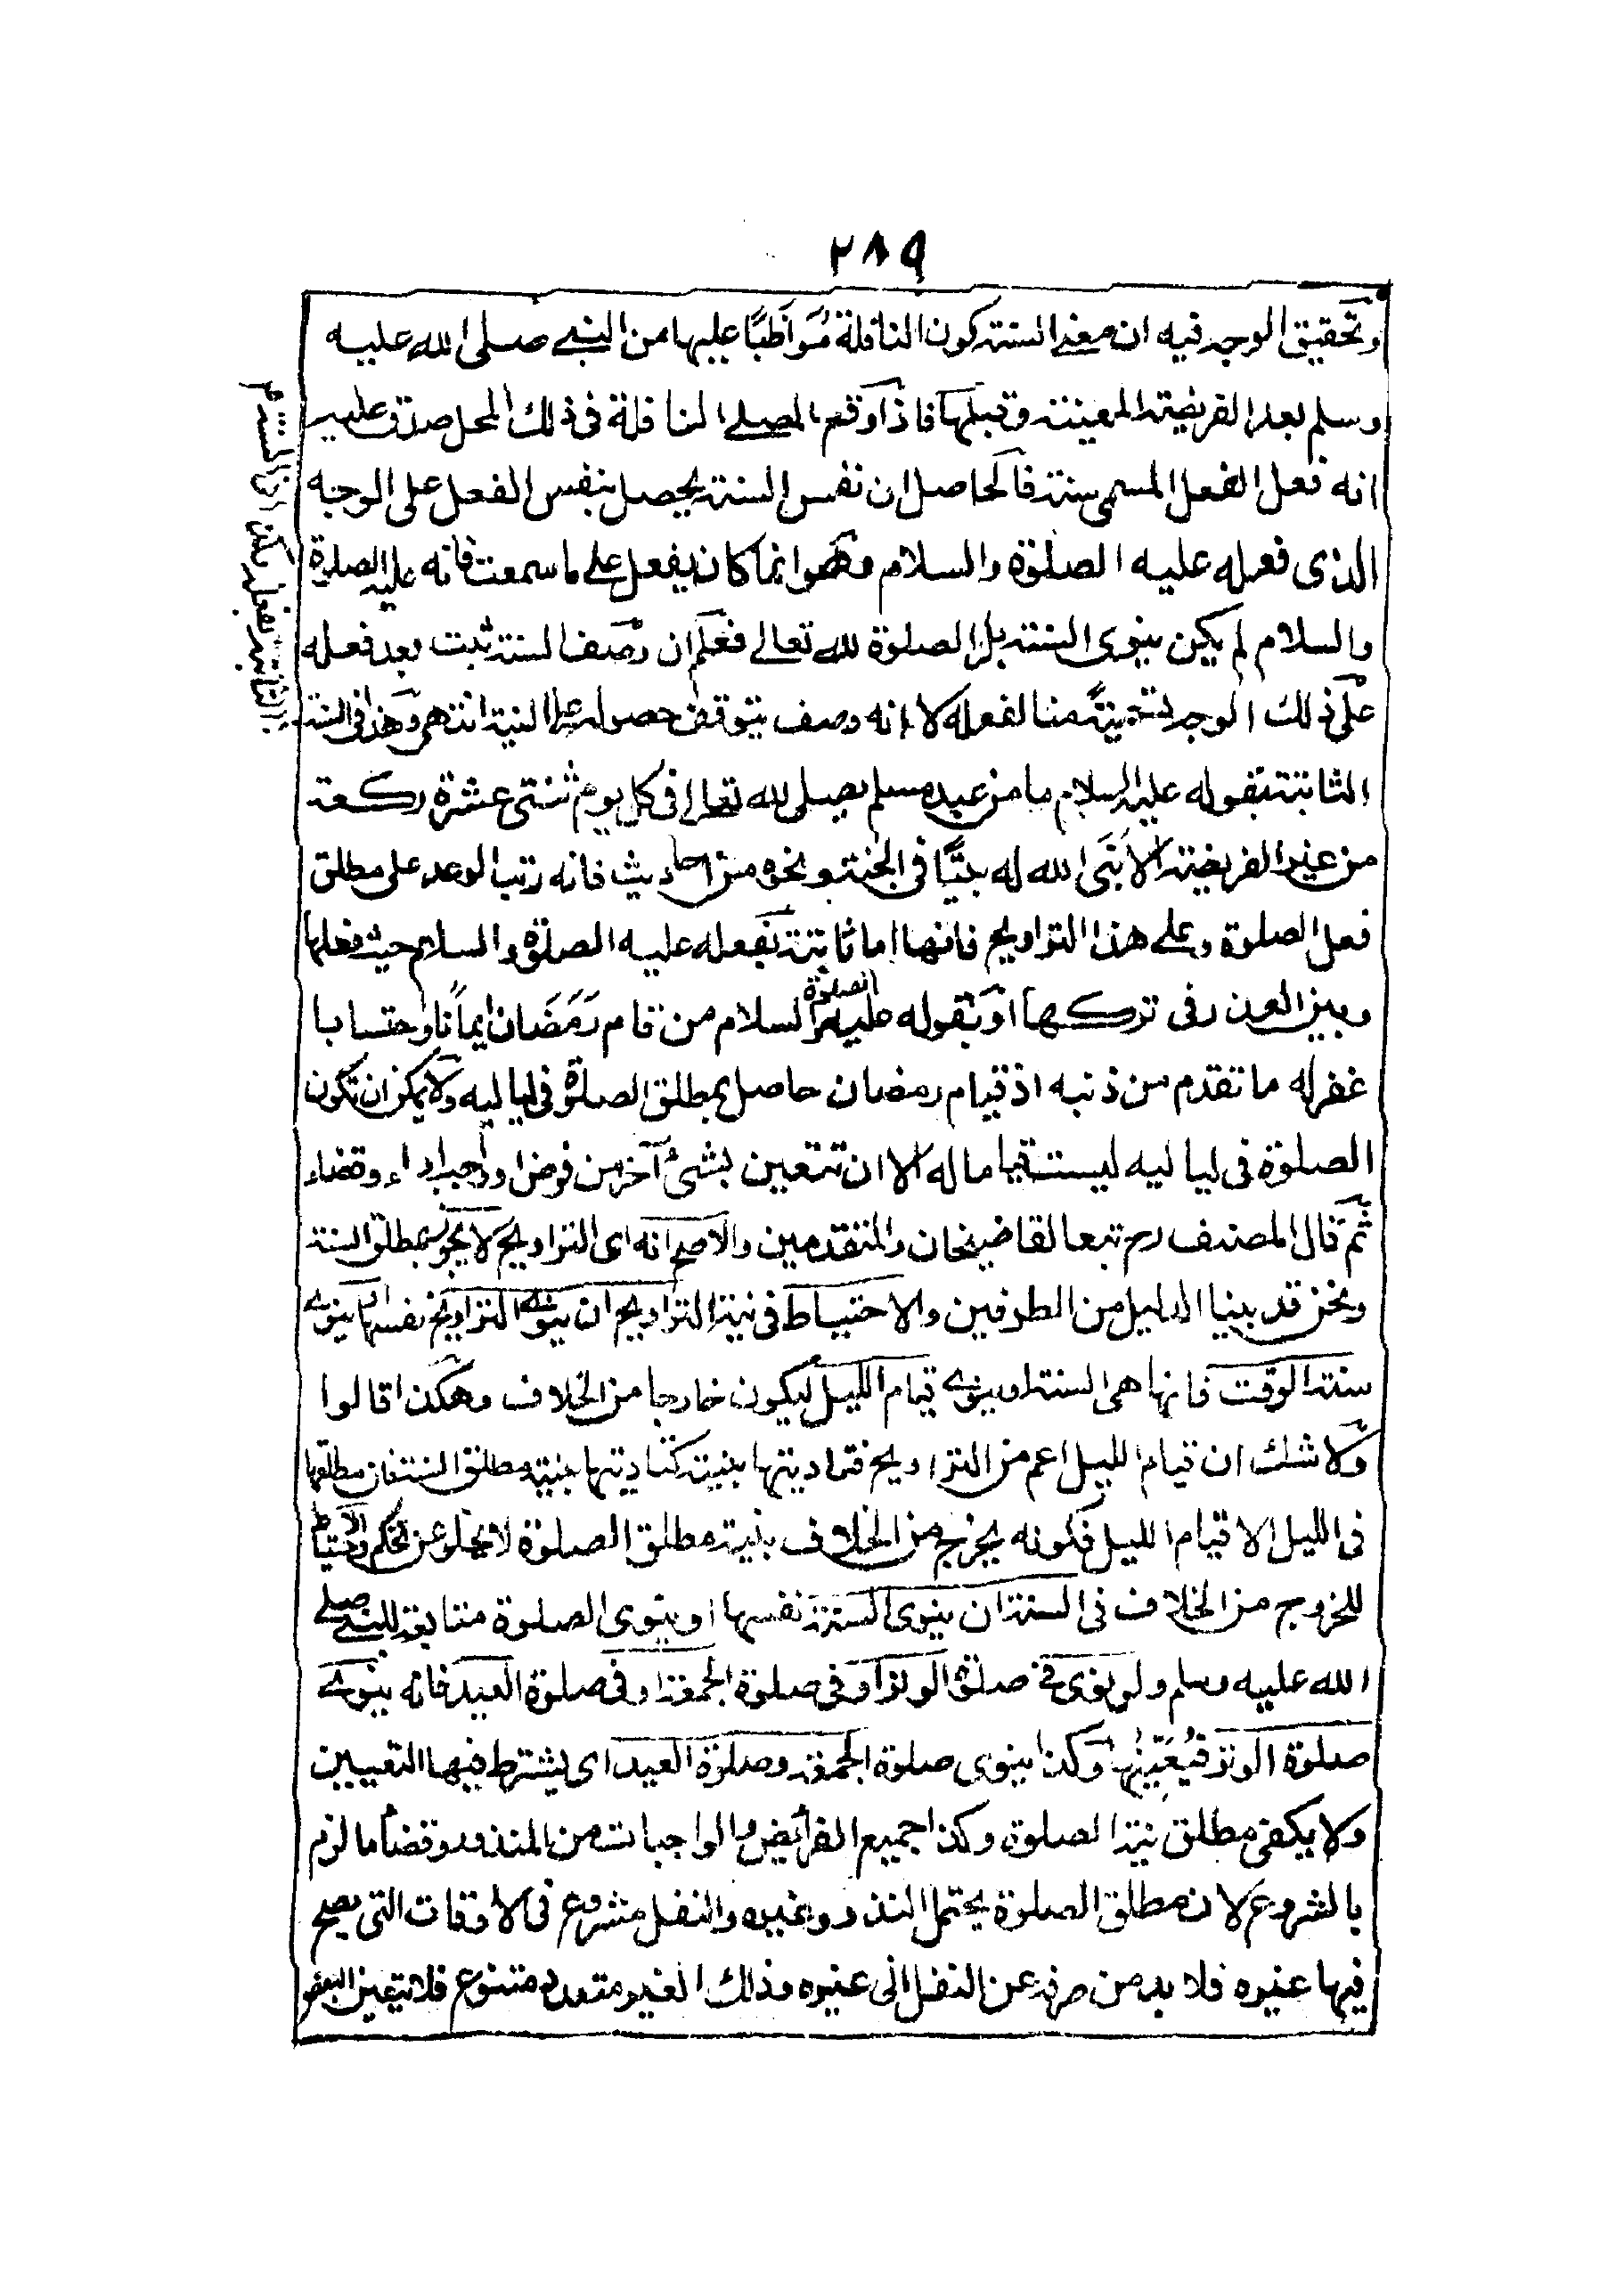 ٢٨٩
وتحقيق الوجه فيه ان معنى السنة كون النافلة مُوَاظَبًا عليها من النبي صلى الله عليه
وسلم بعد الفريضة المعينة وقبلها فاذا اوقع المصلي النافلة في ذلك المحل صدق عليه
انه فعل الفعل المسمى سنة فالحاصل ان نفس السنة يحصل بنفس الفعل على الوجه
الذى فعله عليه الصلوة والسلام وهو انما كان يفعل على ما سمعت فانه عليه الصلوة
والسلام لم يكن ينوى السنة بل الصلوة لله تعالى فعلم ان وصف السنة ثبت بعد فعله
على ذلك الوجه تسمية منا لفعله لا انه وصف يتوقف حصوله على النية انتهى وهذا فى السنة
الثابتة بقوله عليه السلام ما من عبد مسلم يصلى لله تعالى فى كل يوم ثنتى عشرة ركعة
من غير الفريضة الا بَنَى الله له بيتًا فى الجنة ونحوه من احاديث فانه رتب الوعد على مطلق
فعل الصلوة وعلى هذا التراويح فانها اما ثابتة بفعله عليه الصلوة والسلام حيث فعلها
وبين العذر فى تركها او بقوله عليه الصلوة والسلام من قام رَمَضَان ايمانًا واحتسابا
غفر له ما تقدم من ذنبه اذ قيام رمضان حاصل بمطلق الصلوة فى لياليه ولا يمكن ان تكون
الصلوة فى لياليه ليست قياما له الا ان تتعين بشئ آخر من فرض او واجب اداء وقضاء
ثم قال المصنف رح تبعا لقاضيخان والمتقدمين والاصح انه اى التراويح لا يجوز بمطلق السنة
ونحن قد بينا الدليل من الطرفين والاحتياط فى نية التراويح ان ينوى التراويح نفسها او ينوى
سنة الوقت فانها هى السنة او ينوى قيام الليل ليكون خارجا من الخلاف وهكذا قالوا
ولا شك ان قيام الليل اعم من التراويح فتاديتها بنيته كتاديتها بنية مطلق السنة فان مطلقها
فى الليل الا قيام الليل فكونه يخرج من الخلاف بنية مطلق الصلوة لا يخلو عن تحكم والاحتياط
للخروج من الخلاف فى السنة ان ينوى السنة نفسها او ينوى الصلوة متابعة للنبى صلى
الله عليه وسلم ولو نوى فى صلوة الوتر او فى صلوة الجمعة او فى صلوة العيد فانه ينوى
صلوة الوتر فيُعَيِّنُها وكذا ينوى صلوة الجمعة وصلوة العيد اى يشترط فيها التعيين
ولا يكفى مطلق نية الصلوة وكذا جميع الفرائض والواجبات من المنذور وقضأ ما لزم
بالشروع لان مطلق الصلوة يحتمل النذر وغيره والنفل مشروع فى الاوقات التى يصح
فيها غيره فلا بد من صرفه عن النفل الى غيره وذلك الغير متعدد متنوع فلا يتعين البعض